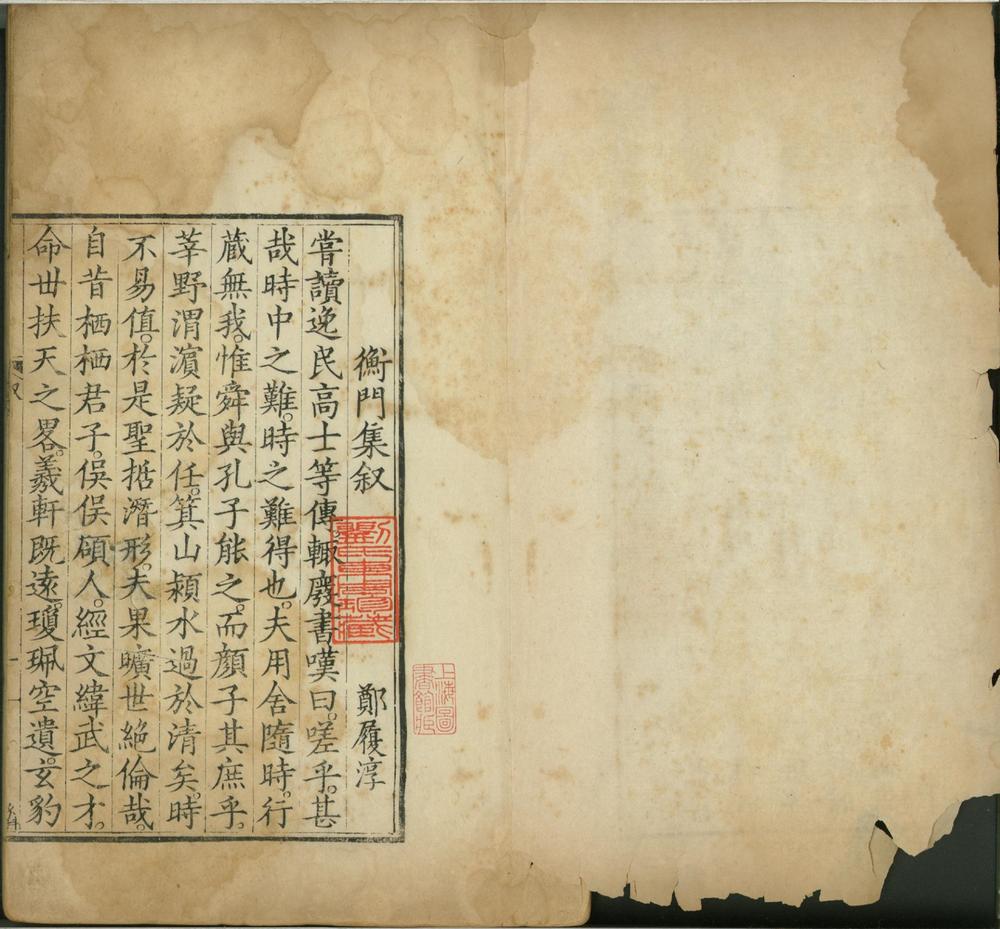 衡門集叙 鄭履淳
嘗讀逸民高士等傳輙廢書嘆曰。嗟乎。甚
哉時中之難。時之難得也。夫用舍隨時。行
藏無我。惟舜與孔子能之。而顏子其庶乎。
莘野渭濵疑於任。箕山潁水過於清矣。時
不易值。於是聖括潛形。夫果曠世絶倫哉。
自昔栖栖君子。俁俁碩人。經文緯武之才。
命世扶天之畧。羲軒既遠。瓊珮空遺。玄豹
上海圖
書館藏